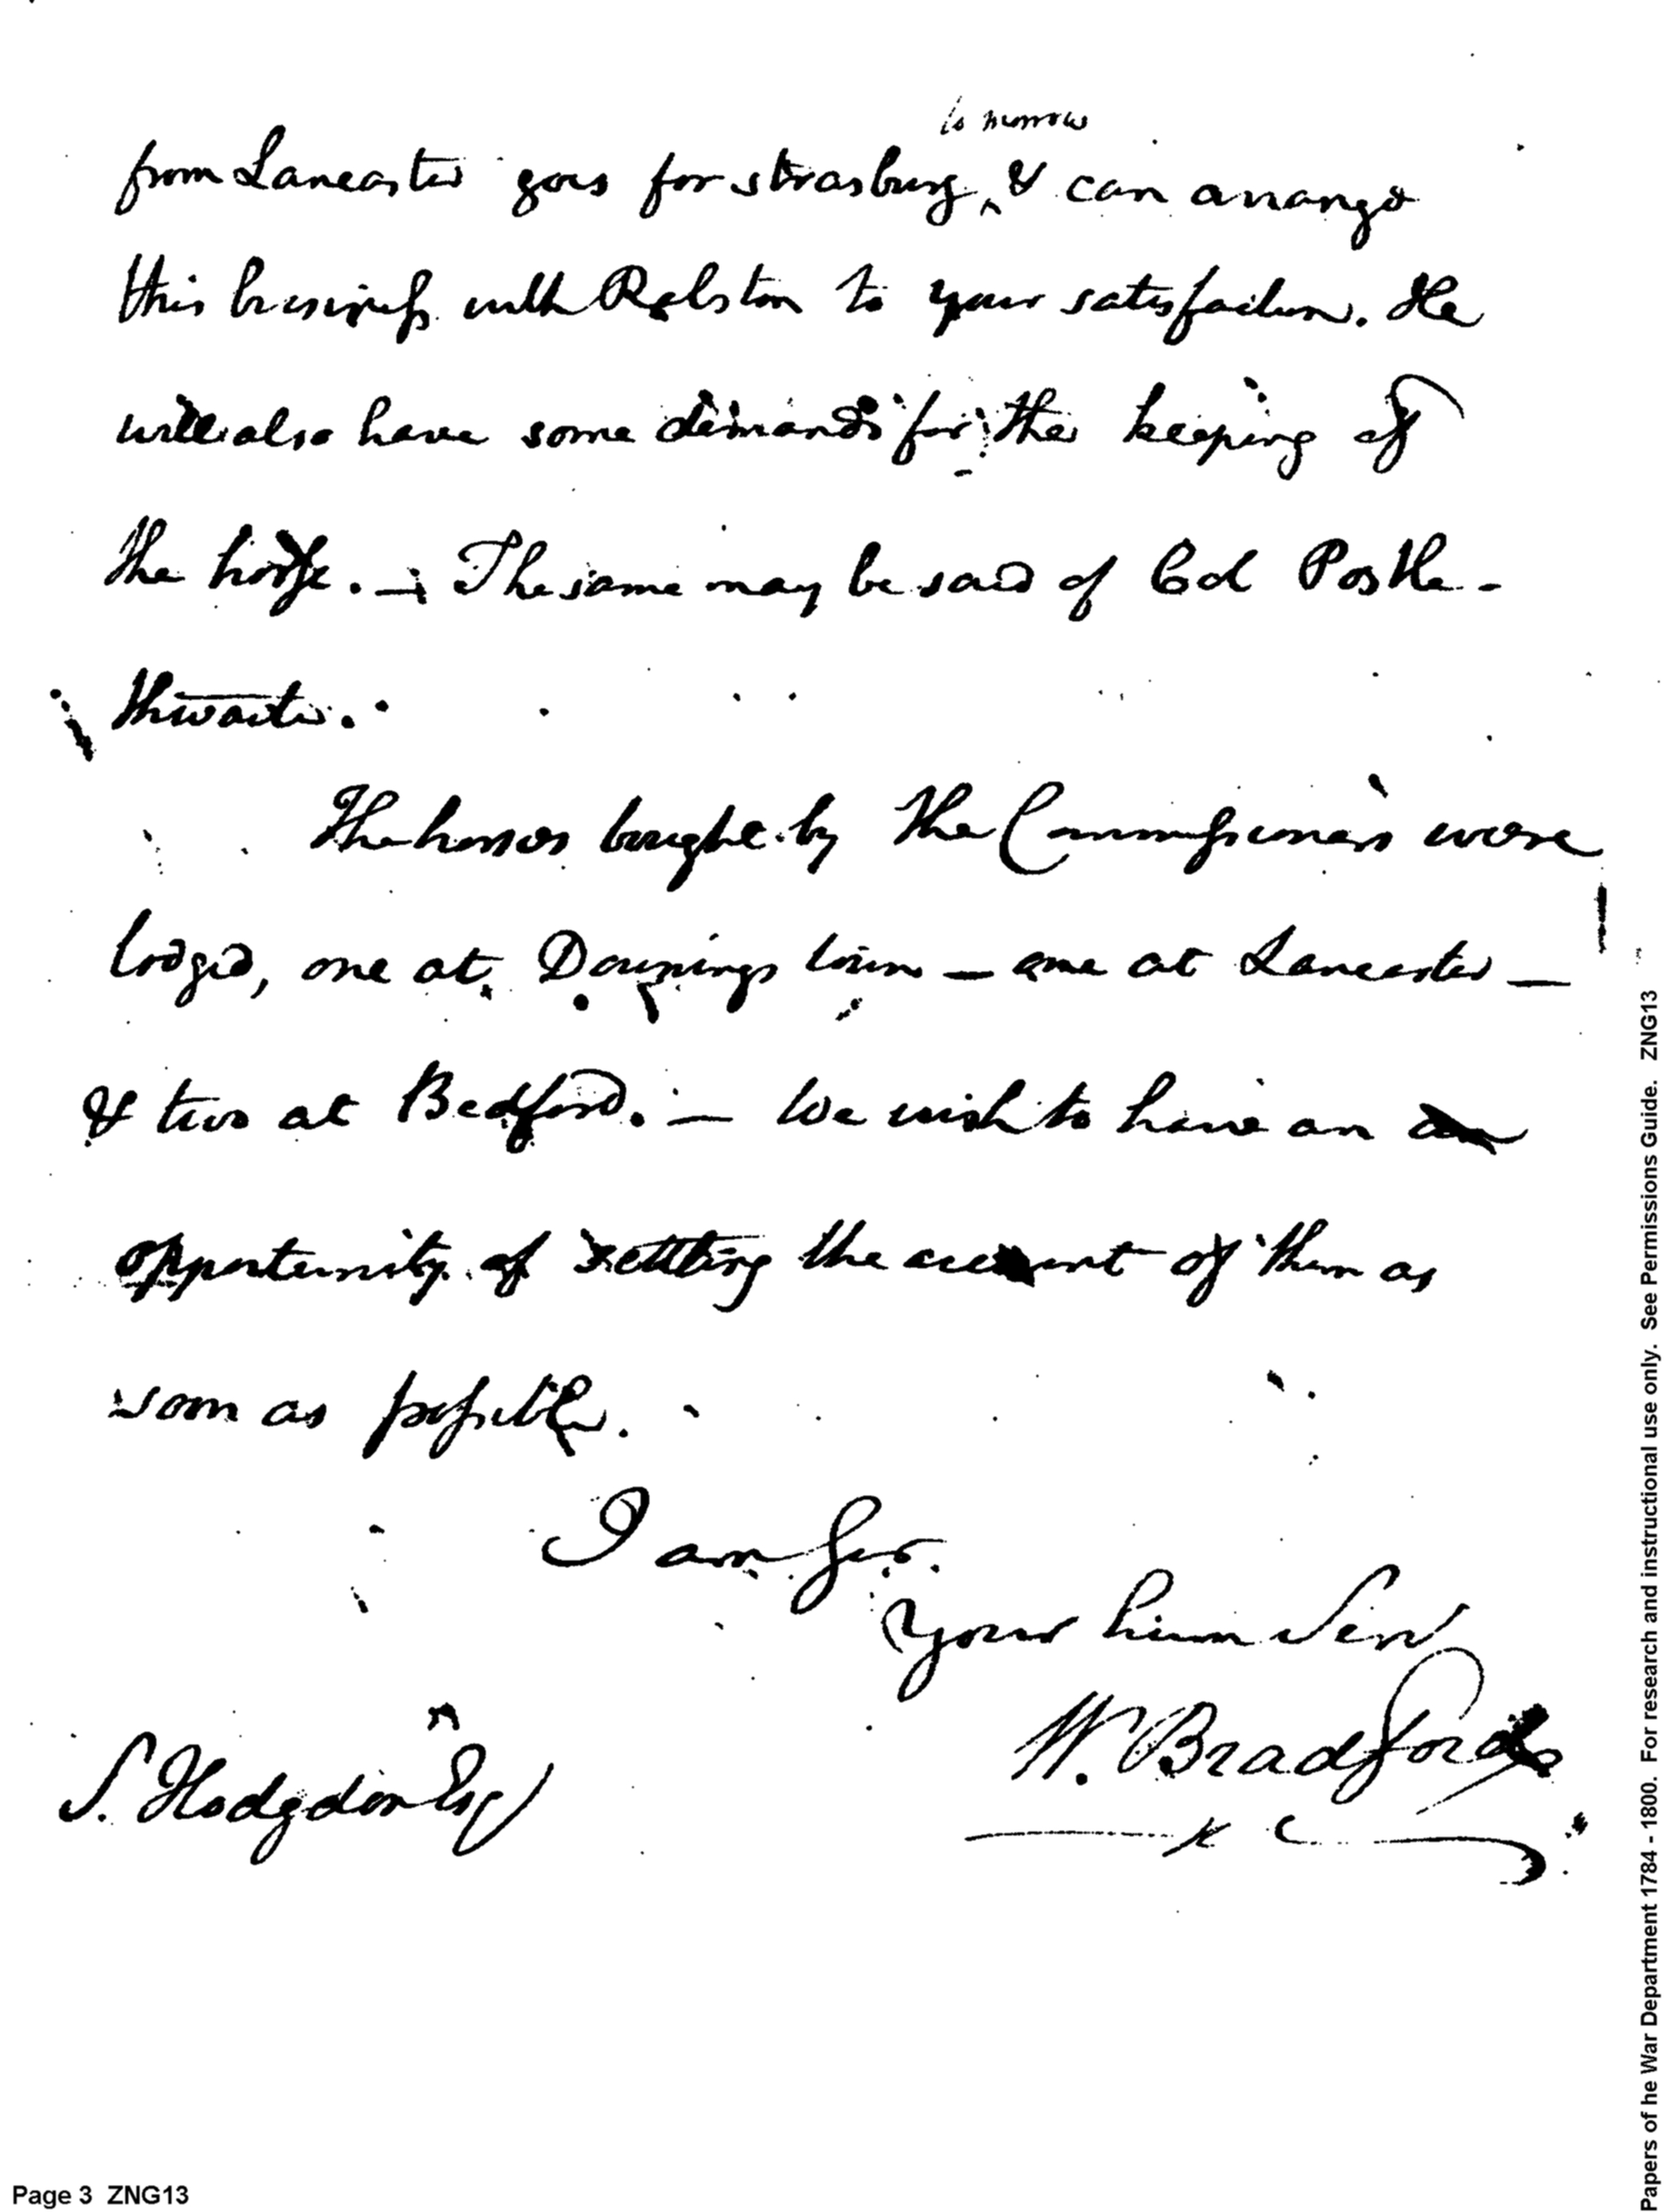 to morrow
from Lancaster goes for strasburg, & can arrange
this business with Ralston to your satisfaction. He
will also have some demands for the keeping of
the horse. — The same may be said of Col Postle-
thwaite.
The horses bought by the Commissioners were
lodged, one at Downings town — one at Lancaster —
& two at Bedford. — We wish to have an
opportunity of settling the account of them as
soon as possible.
I am Sir
Your hum Serv
W. Bradford
S. Hodgdon Esq
Page 3 ZNG13
Papers of he War Department 1784 - 1800. For research and instructional use only. See Permissions Guide. ZNG13